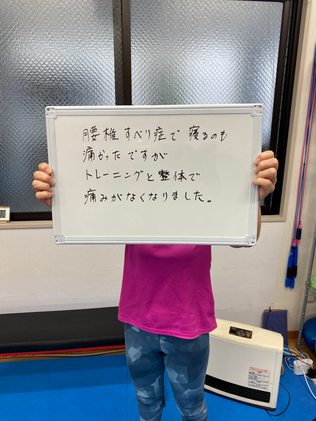 腰椎すべり症で 寝るのも
痛かったですが
トレーニングと整体で
痛みがなくなりました。